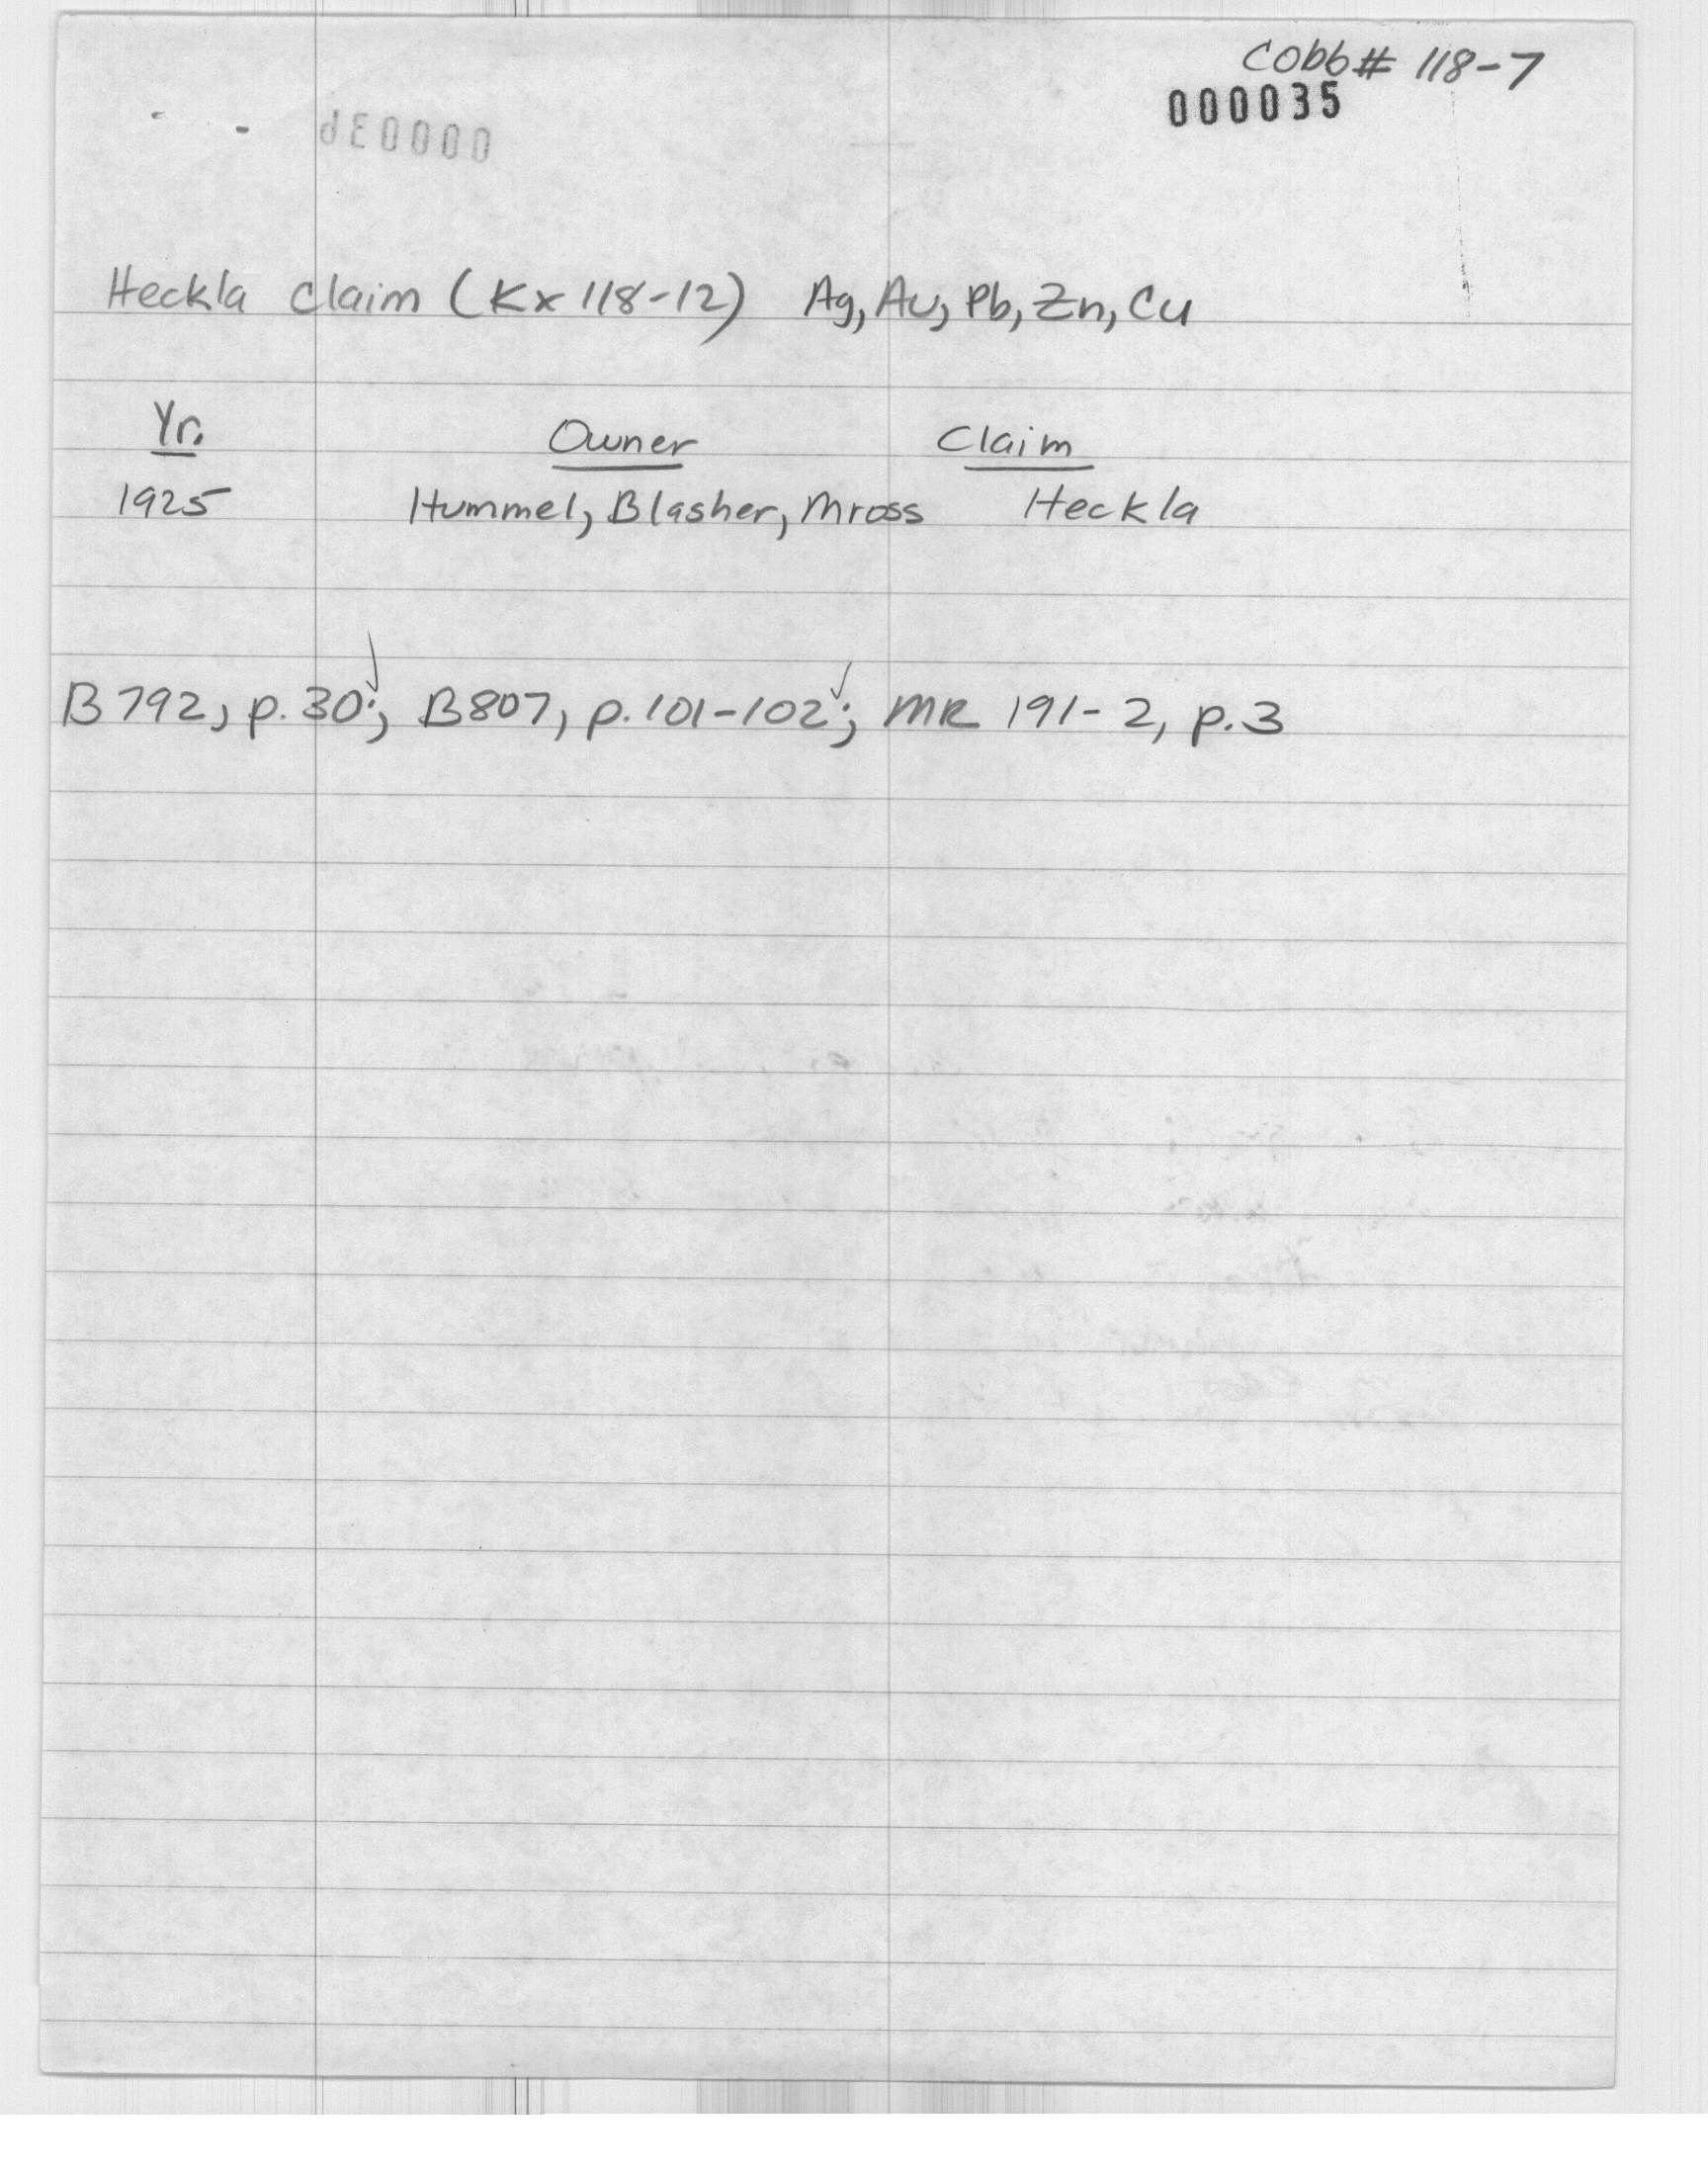 Cobb# 118-7
000035
Heckla Claim (Kx 118-12) Ag, Au, Pb, Zn, Cu
Yr. Owner Claim
1925 Hummel, Blasher, Mross Heckla
B792, p.30✓; B807, p.101-102✓; MR 191-2, p.3